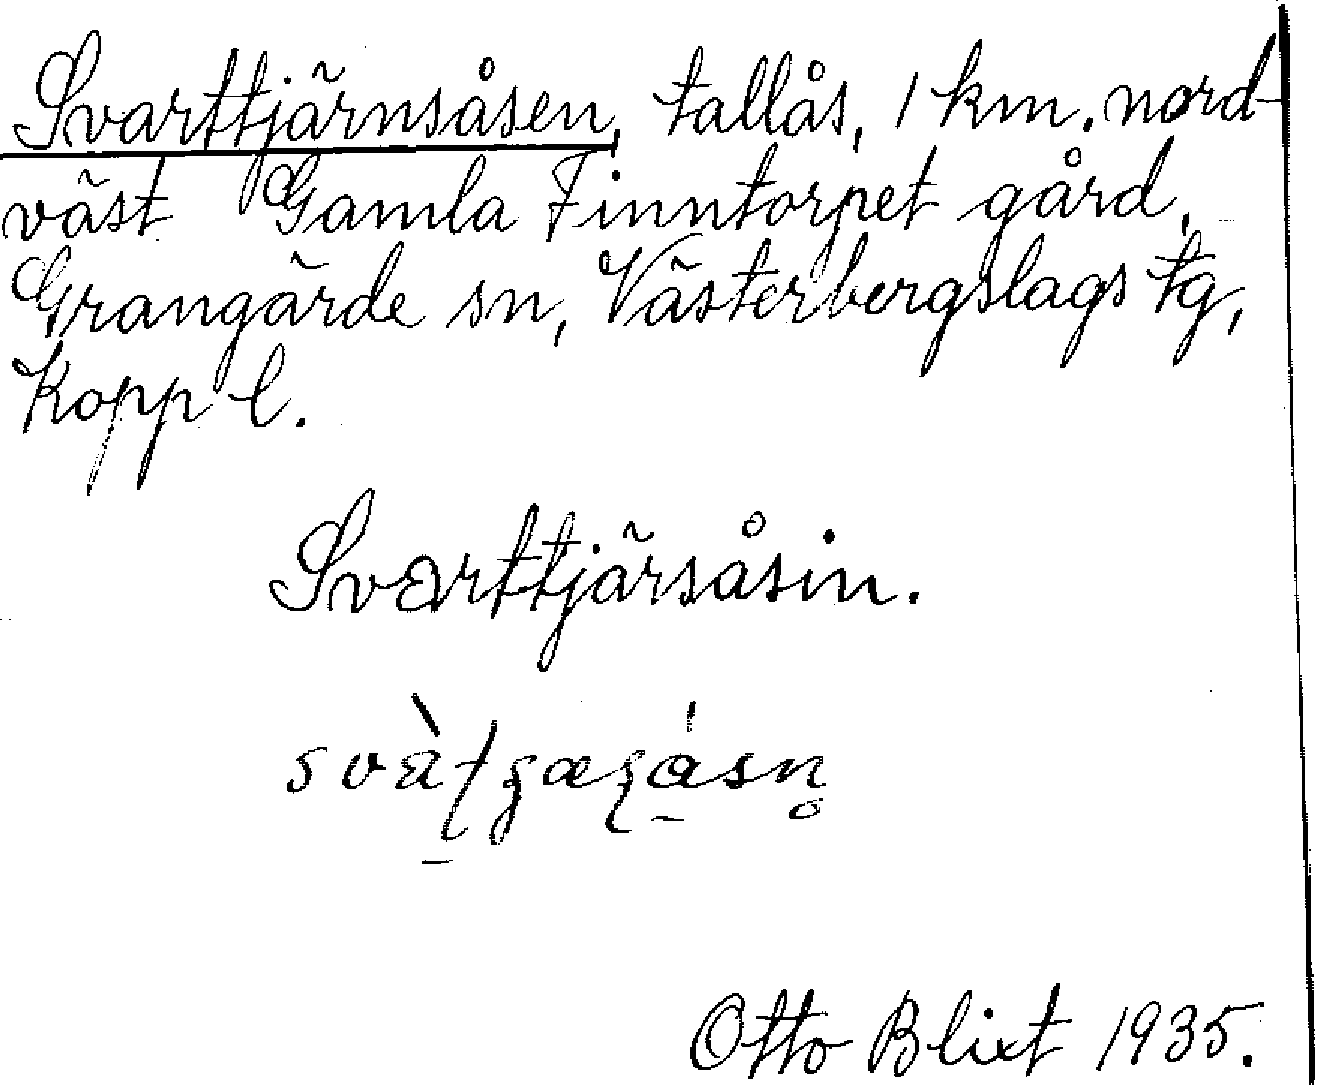 Svarttjärnsåsen, tallås, 1 km. nord-
väst Gamla Finntorpet gård,
Grangärde sn, Västerbergslags tg,
Kopp l.
Svarttjärsåsin.
Otto Blixt 1935.